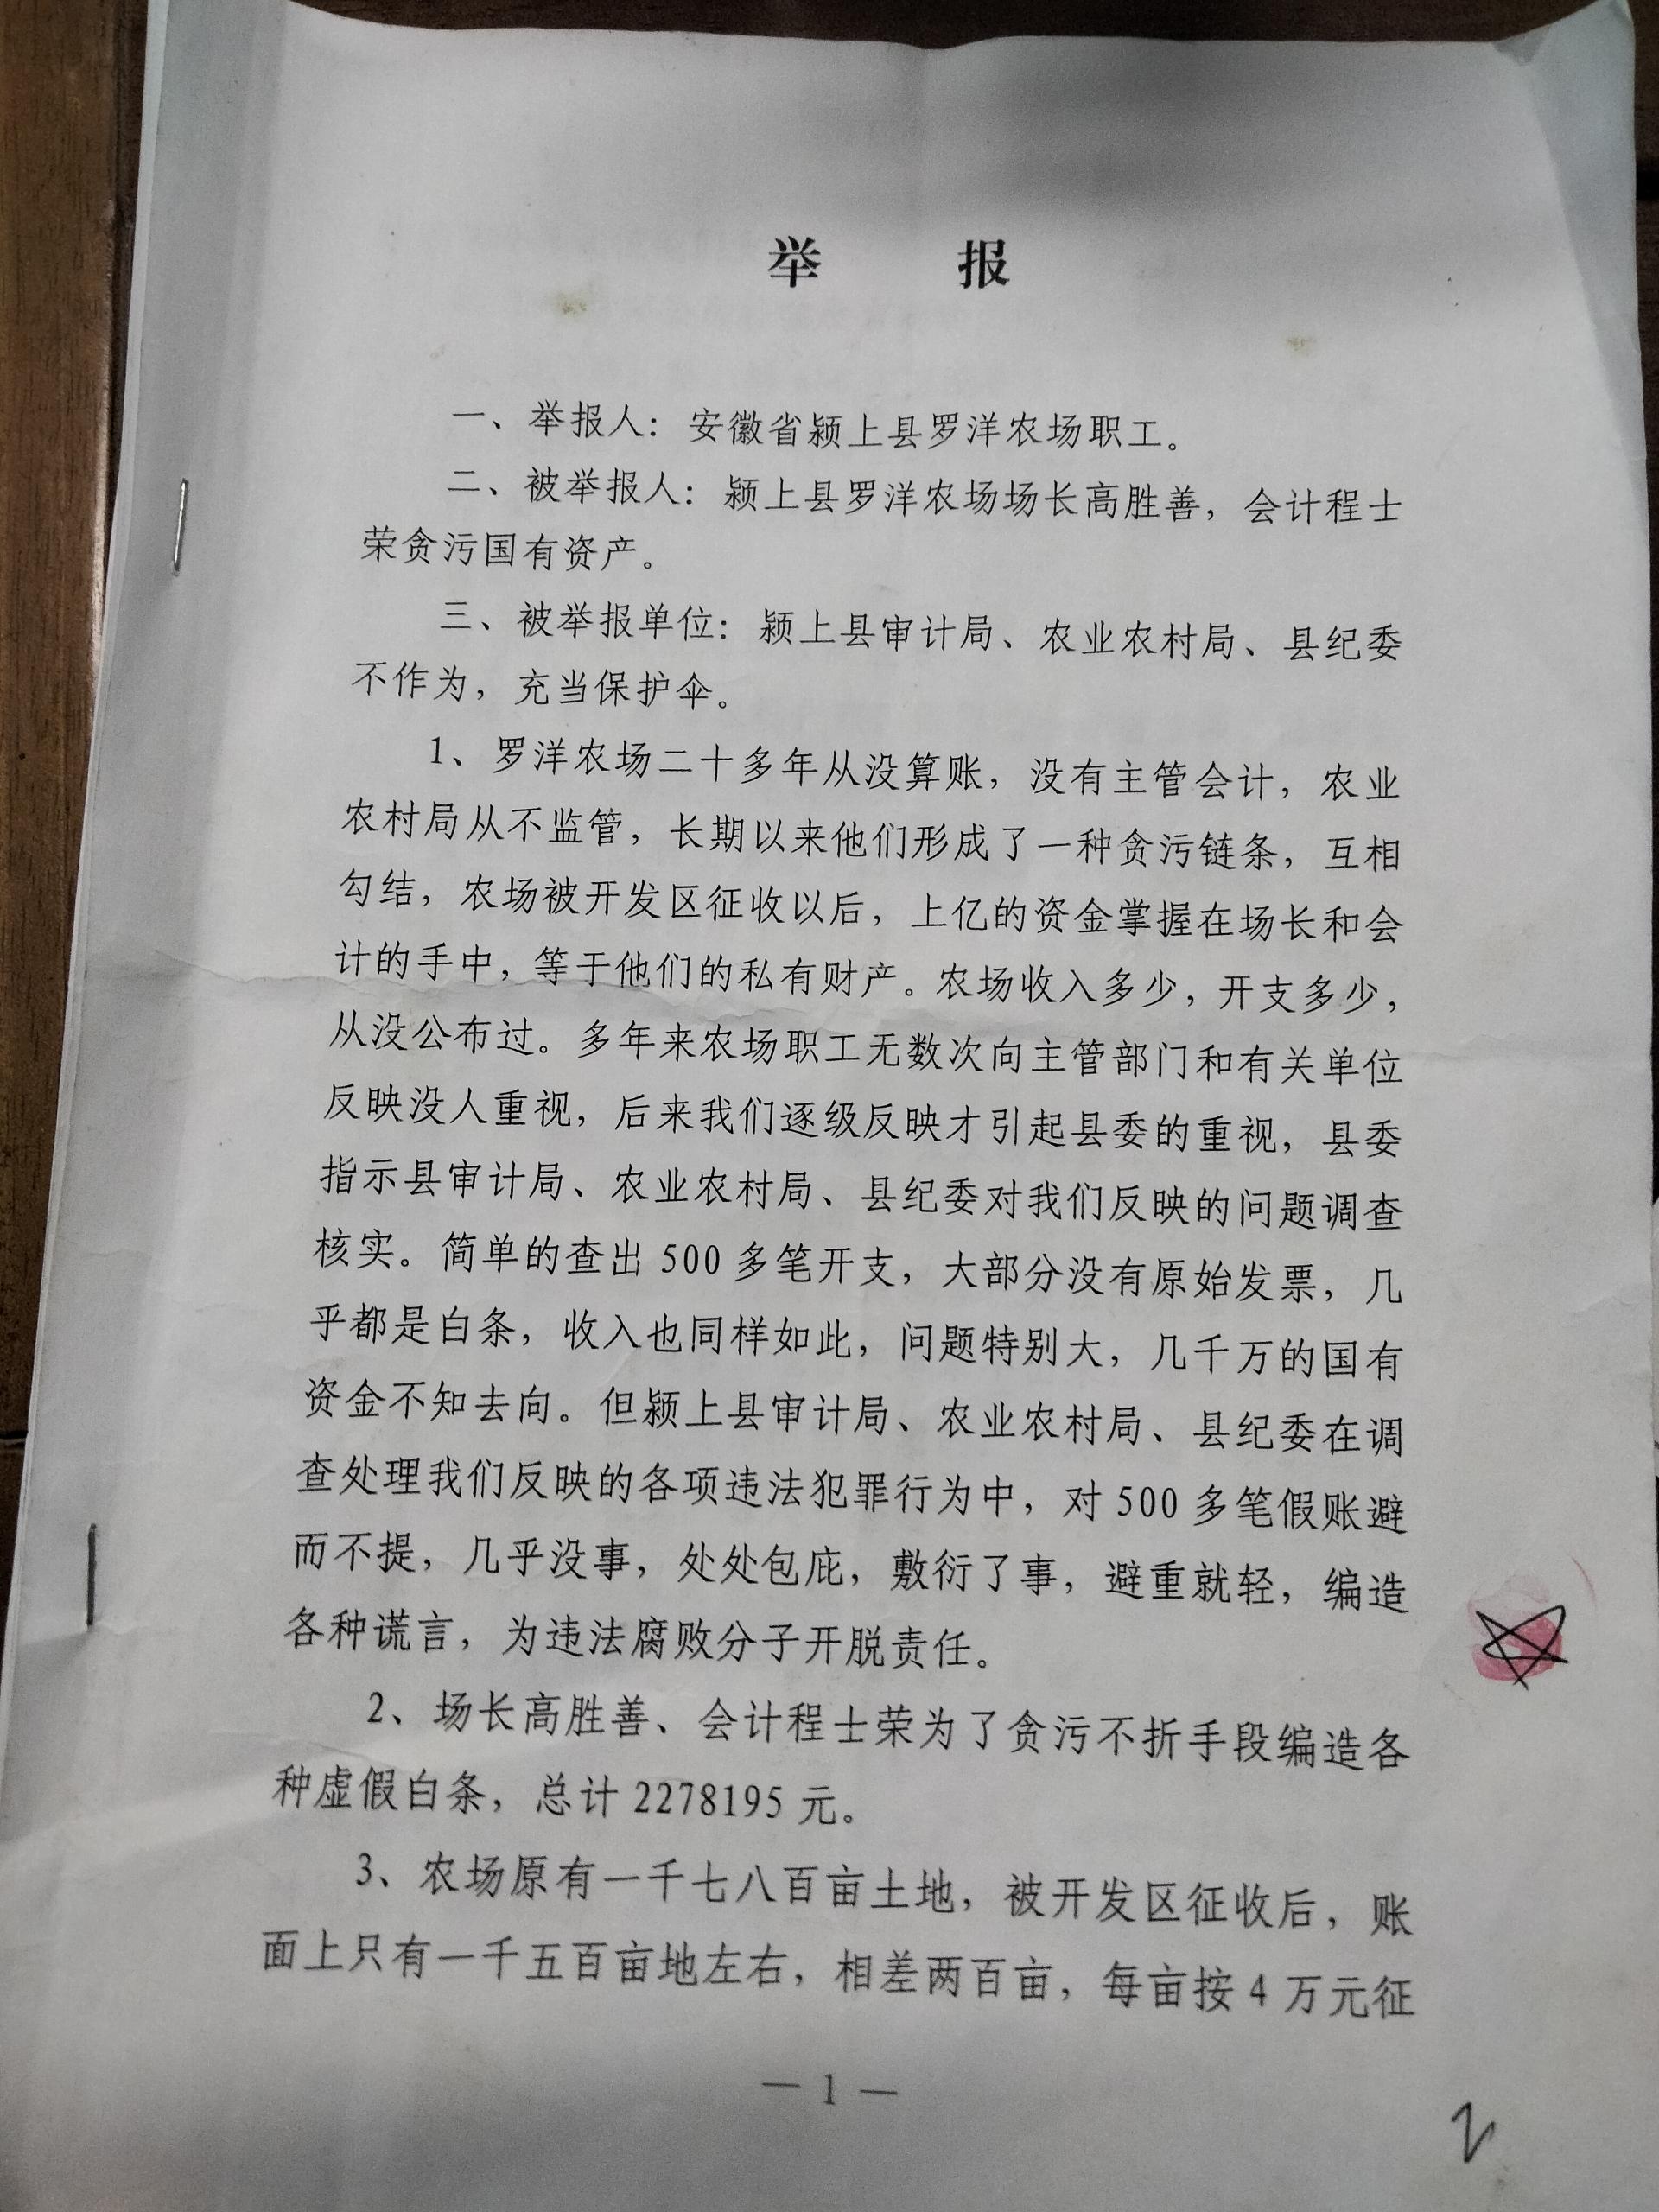 举 报
一、举报人：安徽省颍上县罗洋农场职工。
二、被举报人：颍上县罗洋农场场长高胜善，会计程士
荣贪污国有资产。
三、被举报单位：颍上县审计局、农业农村局、县纪委
不作为，充当保护伞。
1、罗洋农场二十多年从没算账，没有主管会计，农业
农村局从不监管，长期以来他们形成了一种贪污链条，互相
勾结，农场被开发区征收以后，上亿的资金掌握在场长和会
计的手中，等于他们的私有财产。农场收入多少，开支多少，
从没公布过。多年来农场职工无数次向主管部门和有关单位
反映没人重视，后来我们逐级反映才引起县委的重视，县委
指示县审计局、农业农村局、县纪委对我们反映的问题调查
核实。简单的查出 500 多笔开支，大部分没有原始发票，几
乎都是白条，收入也同样如此，问题特别大，几千万的国有
资金不知去向。但颍上县审计局、农业农村局、县纪委在调
查处理我们反映的各项违法犯罪行为中，对 500 多笔假账避
而不提，几乎没事，处处包庇，敷衍了事，避重就轻，编造
各种谎言，为违法腐败分子开脱责任。
2、场长高胜善、会计程士荣为了贪污不折手段编造各
种虚假白条，总计 2278195 元。
3、农场原有一千七八百亩土地，被开发区征收后，账
面上只有一千五百亩地左右，相差两百亩，每亩按 4 万元征
— 1 —
2